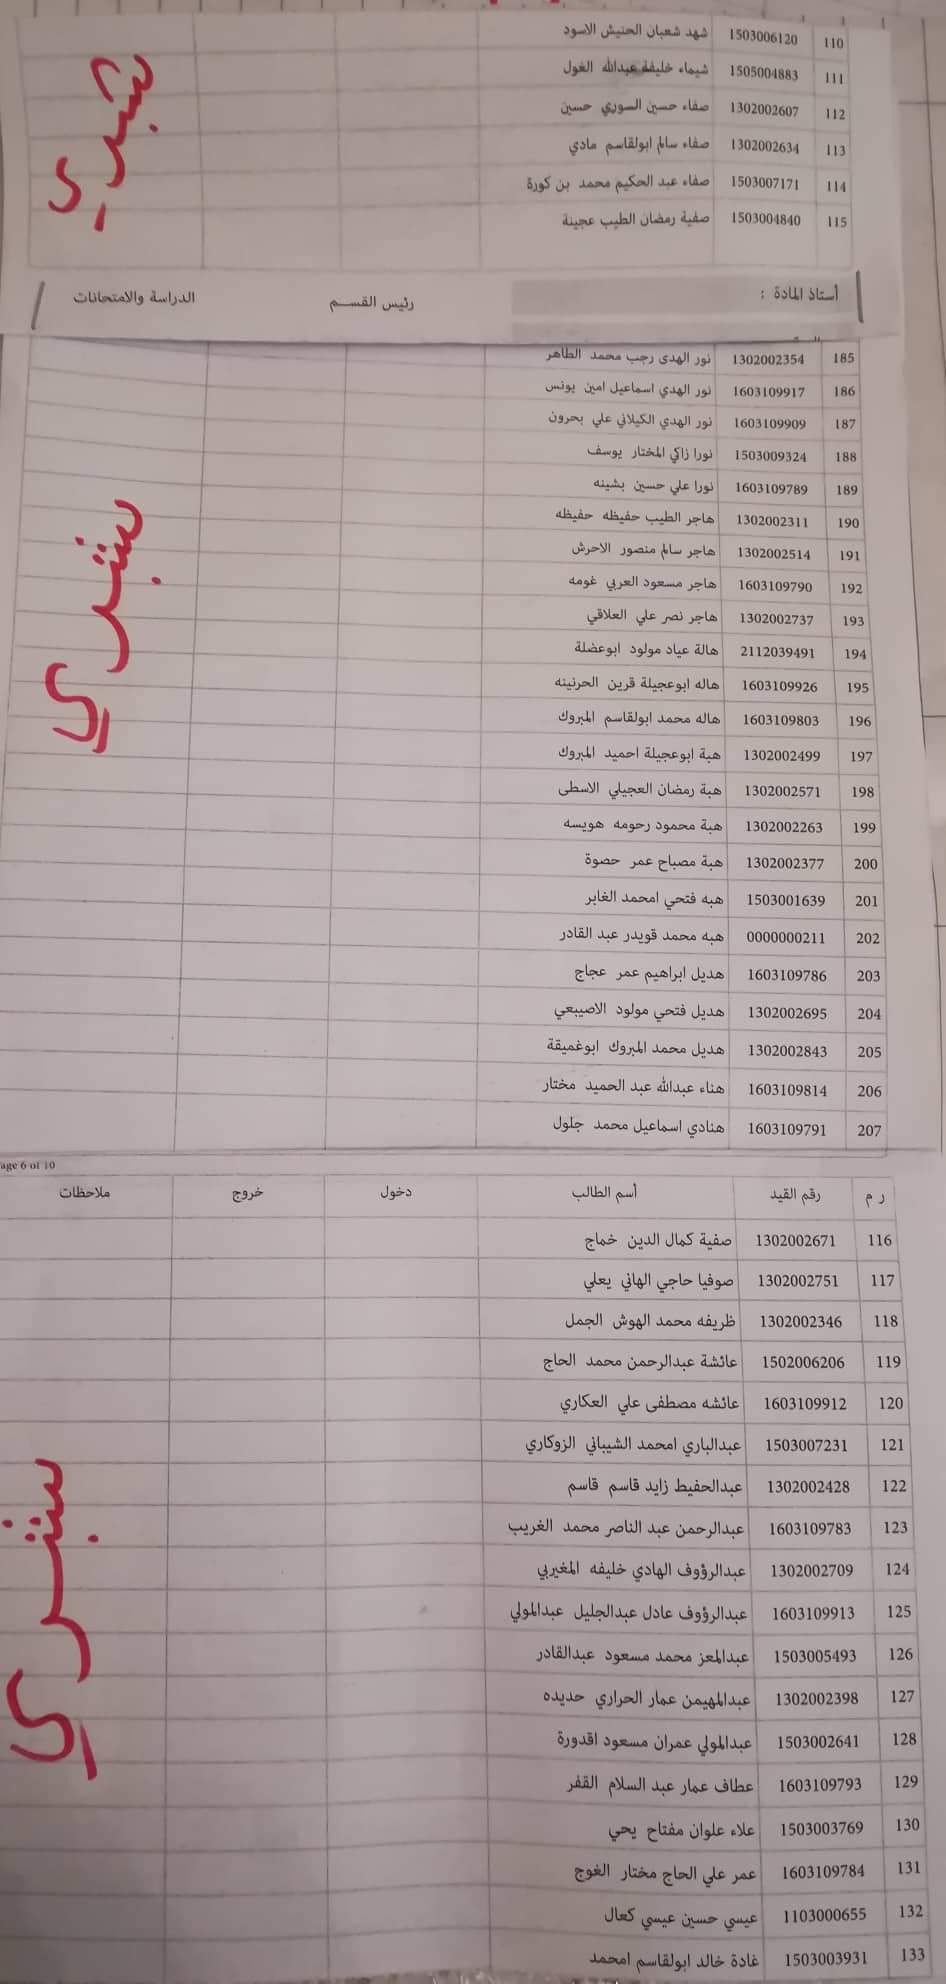 110 1503006120 شهد شعبان الحنيش الاسود
111 1505004883 شيماء خليفة عبدالله الغول
112 1302002607 صفاء حسين السوري حسين
113 1302002634 صفاء سالم ابولقاسم مادي
114 1503007171 صفاء عبد الحكيم محمد بن كورة
115 1503004840 صفية رمضان الطيب عجينة
أستاذ المادة : رئيس القسم الدراسة والامتحانات
185 1302002354 نور الهدى رجب محمد الطاهر
186 1603109917 نور الهدي اسماعيل امين يونس
187 1603109909 نور الهدي الكيلاني علي بحرون
188 1503009324 نورا زاكي المختار يوسف
189 1603109789 نورا علي حسين بشينه
190 1302002311 هاجر الطيب حفيظه حفيظه
191 1302002514 هاجر سالم منصور الاحرش
192 1603109790 هاجر مسعود العربي غومه
193 1302002737 هاجر نصر علي العلاقي
194 2112039491 هالة عياد مولود ابوعضلة
195 1603109926 هاله ابوعجيلة قرين الحرنينه
196 1603109803 هاله محمد ابولقاسم المبروك
197 1302002499 هبة ابوعجيلة احميد المبروك
198 1302002571 هبة رمضان العجيلي الاسطى
199 1302002263 هبة محمود رحومه هويسه
200 1302002377 هبة مصباح عمر حصوة
201 1503001639 هبه فتحي امحمد الغابر
202 0000000211 هبه محمد قويدر عبد القادر
203 1603109786 هديل ابراهيم عمر عجاج
204 1302002695 هديل فتحي مولود الاصيبعي
205 1302002843 هديل محمد المبروك ابوغميقة
206 1603109814 هناء عبدالله عبد الحميد مختار
207 1603109791 هنادي اسماعيل محمد جلول
age 6 of 10
ر م رقم القيد أسم الطالب دخول خروج ملاحظات
116 1302002671 صفية كمال الدين خماج
117 1302002751 صوفيا حاجي الهاني يعلي
118 1302002346 ظريفه محمد الهوش الجمل
119 1502006206 عائشة عبدالرحمن محمد الحاج
120 1603109912 عائشه مصطفى علي العكاري
121 1503007231 عبدالباري امحمد الشيباني الزوكاري
122 1302002428 عبدالحفيظ زايد قاسم قاسم
123 1603109783 عبدالرحمن عبد الناصر محمد الغريب
124 1302002709 عبدالرؤوف الهادي خليفه المغيربي
125 1603109913 عبدالرؤوف عادل عبدالجليل عبدالمولي
126 1503005493 عبدالمعز محمد مسعود عبدالقادر
127 1302002398 عبدالمهيمن عمار الحراري حديده
128 1503002641 عبدالمولي عمران مسعود اقدورة
129 1603109793 عطاف عمار عبد السلام القفر
130 1503003769 علاء علوان مفتاح يحي
131 1603109784 عمر علي الحاج مختار الغوج
132 1103000655 عيسي حسين عيسي كعال
133 1503003931 غادة خالد ابولقاسم امحمد